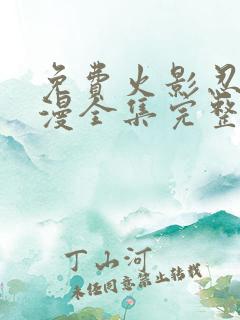 免费火影忍
漫全集完整
丁山河
未经同意禁止转载